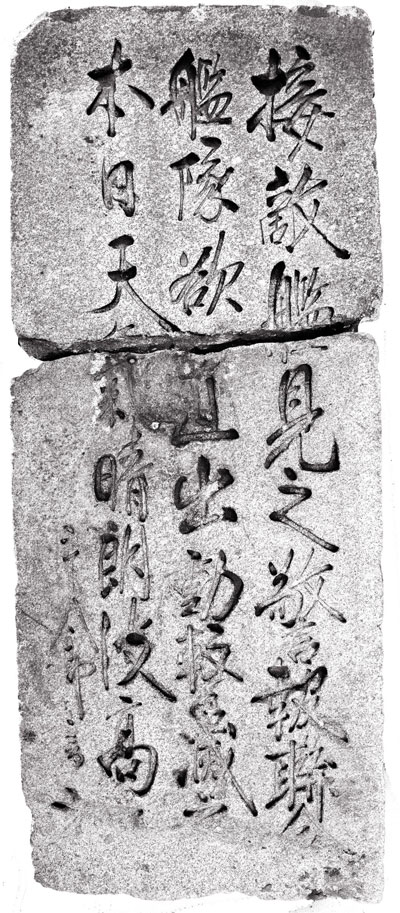 接敵艦見之警報聯合
艦隊欲直出動撃滅之
本日天氣晴朗波高